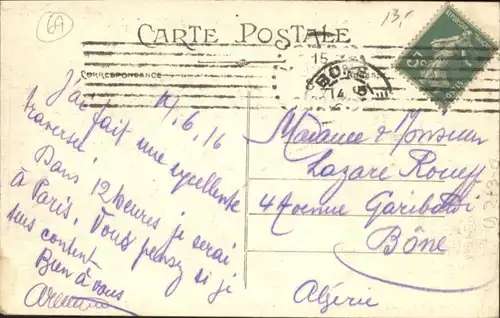 69
13,-
CARTE POSTALE
15
CORRESPONDANCE
14
5
14/6/16
J'ai fait une excellente
traversée.
Dans 12 heures je serai
à Paris. Vous pensez si je
suis content
Bien à vous
Madame & Monsieur
Lazare Roueff
4 Avenue Garibaldi
Bône
Algérie